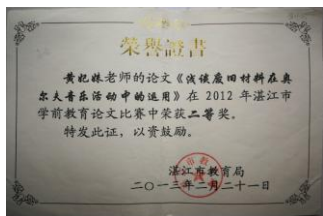 荣誉證書
黄妃妹老师的论文《浅谈废旧材料在奥
尔夫音乐活动中的运用》在2012年湛江市
学前教育论文比赛中荣获二等奖。
特发此证,以资鼓励。
湛江市教育局
二〇一三年二月二十一日